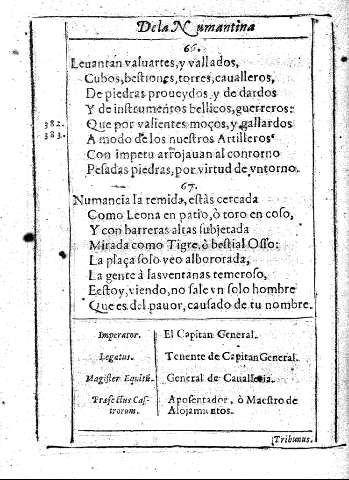 De la Numantina
66.
Leuantan valuartes, y vallados,
Cubos, bestiones, torres, caualleros,
De piedras proueydos y de dardos
Y de instrumentos bellicos, guerreros:
382. Que por valientes moços, y gallardos
383. A modo de los nuestros Artilleros
Con impetu arrojauan al contorno
Pesadas piedras, por virtud de vn torno.
67.
Numancia la temida, estàs cercada
Como Leona en patio, ò toro en coso,
Y con barreras altas subjetada
Mirada como Tigre, ò bestial Osso:
La plaça solo veo albororada,
La gente à las ventanas temeroso,
Eestoy, viendo, no sale vn solo hombre
Que es del pauor, causado de tu nombre.
Imperator. El Capitan General.
Legatus. Tenente de Capitan General.
Magister Equitũ. General de Caualleria.
Præfectus Cas- Aposentador, ò Maestro de
trorum. Alojamientos.
Tribunus.